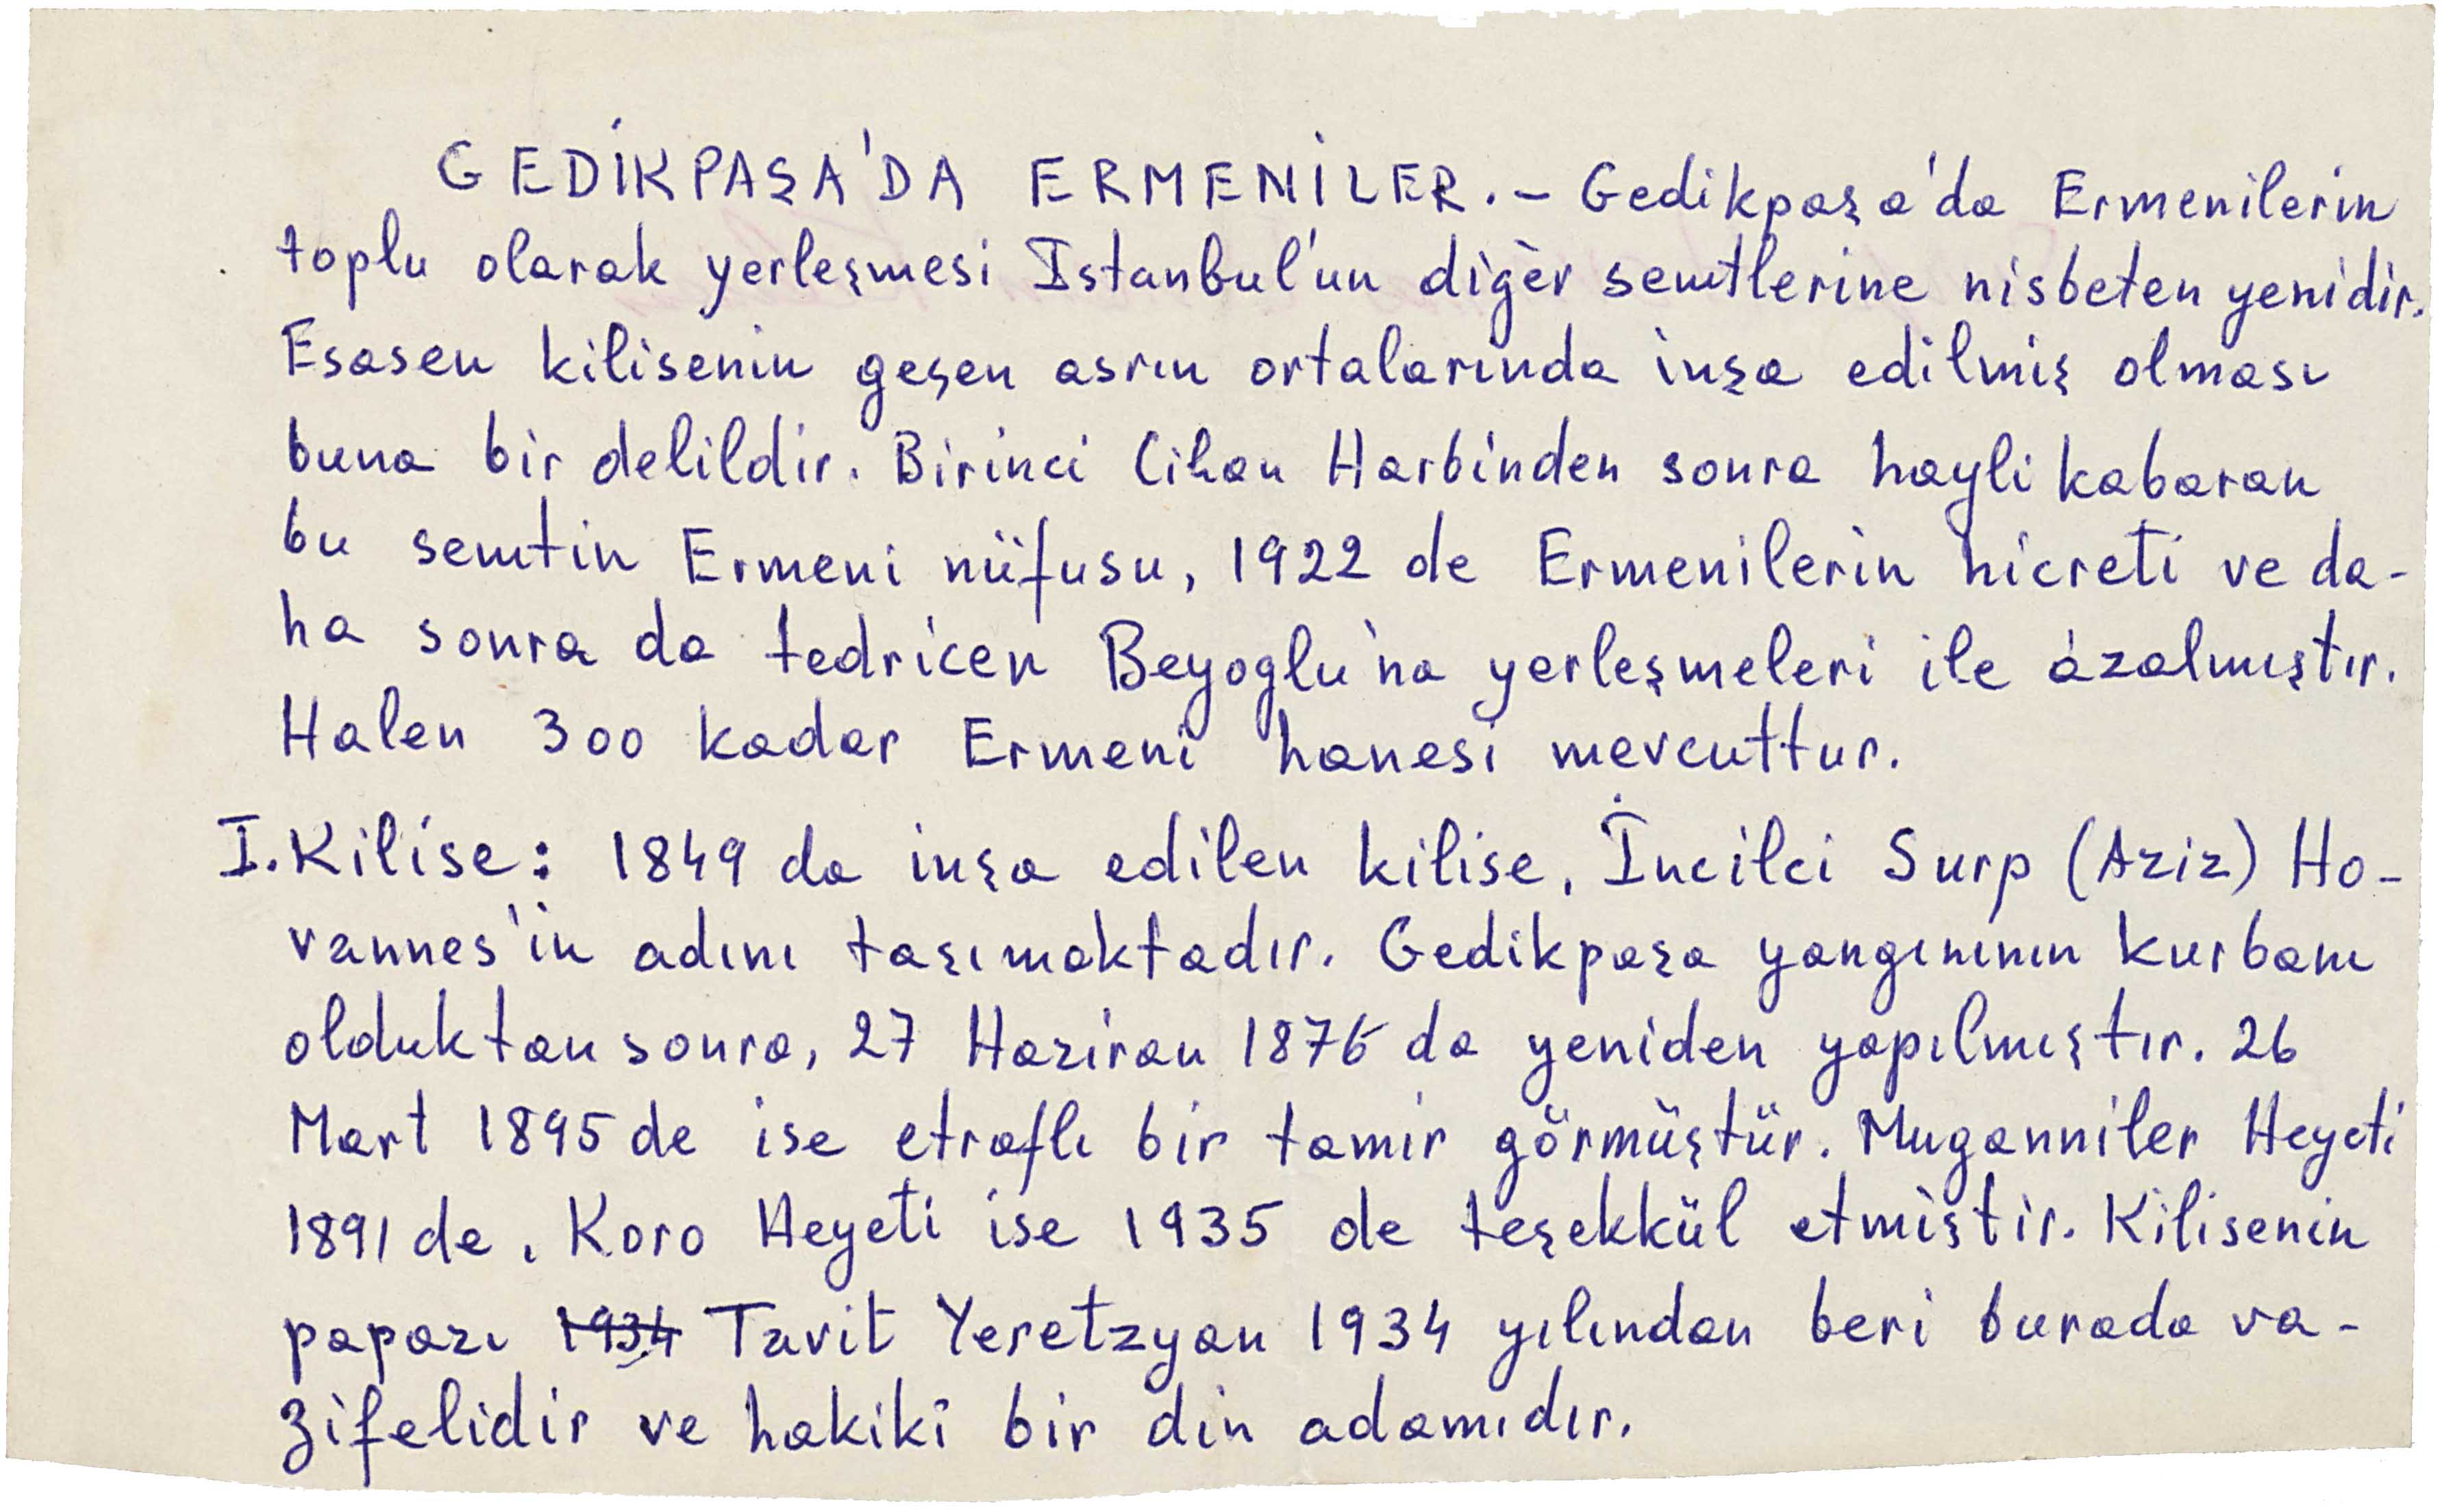 GEDİKPAŞA'DA ERMENİLER.- Gedikpaşa'da Ermenilerin
toplu olarak yerleşmesi Istanbul'un diğer semtlerine nisbeten yenidir.
Esasen kilisenin geçen asrın ortalarında inşa edilmiş olması
buna bir delildir. Birinci Cihan Harbinden sonra hayli kabaran
bu semtin Ermeni nüfusu, 1922 de Ermenilerin hicreti ve da-
ha sonra da tedricen Beyoglu'na yerleşmeleri ile azalmıştır.
Halen 300 kadar Ermeni hanesi mevcuttur.
I. Kilise: 1849 da inşa edilen kilise, İncilci Surp (Aziz) Ho-
vannes'in adını taşımaktadır. Gedikpaşa yangınının kurbanı
olduktan sonra, 27 Haziran 1876 da yeniden yapılmıştır. 26
Mart 1895 de ise etraflı bir tamir görmüştür. Muganniler Heyeti
1891 de, Koro Heyeti ise 1935 de teşekkül etmiştir. Kilisenin
papazı 1934 Tavit Yeretzyan 1934 yılından beri burada va-
zifelidir ve hakikî bir din adamıdır.